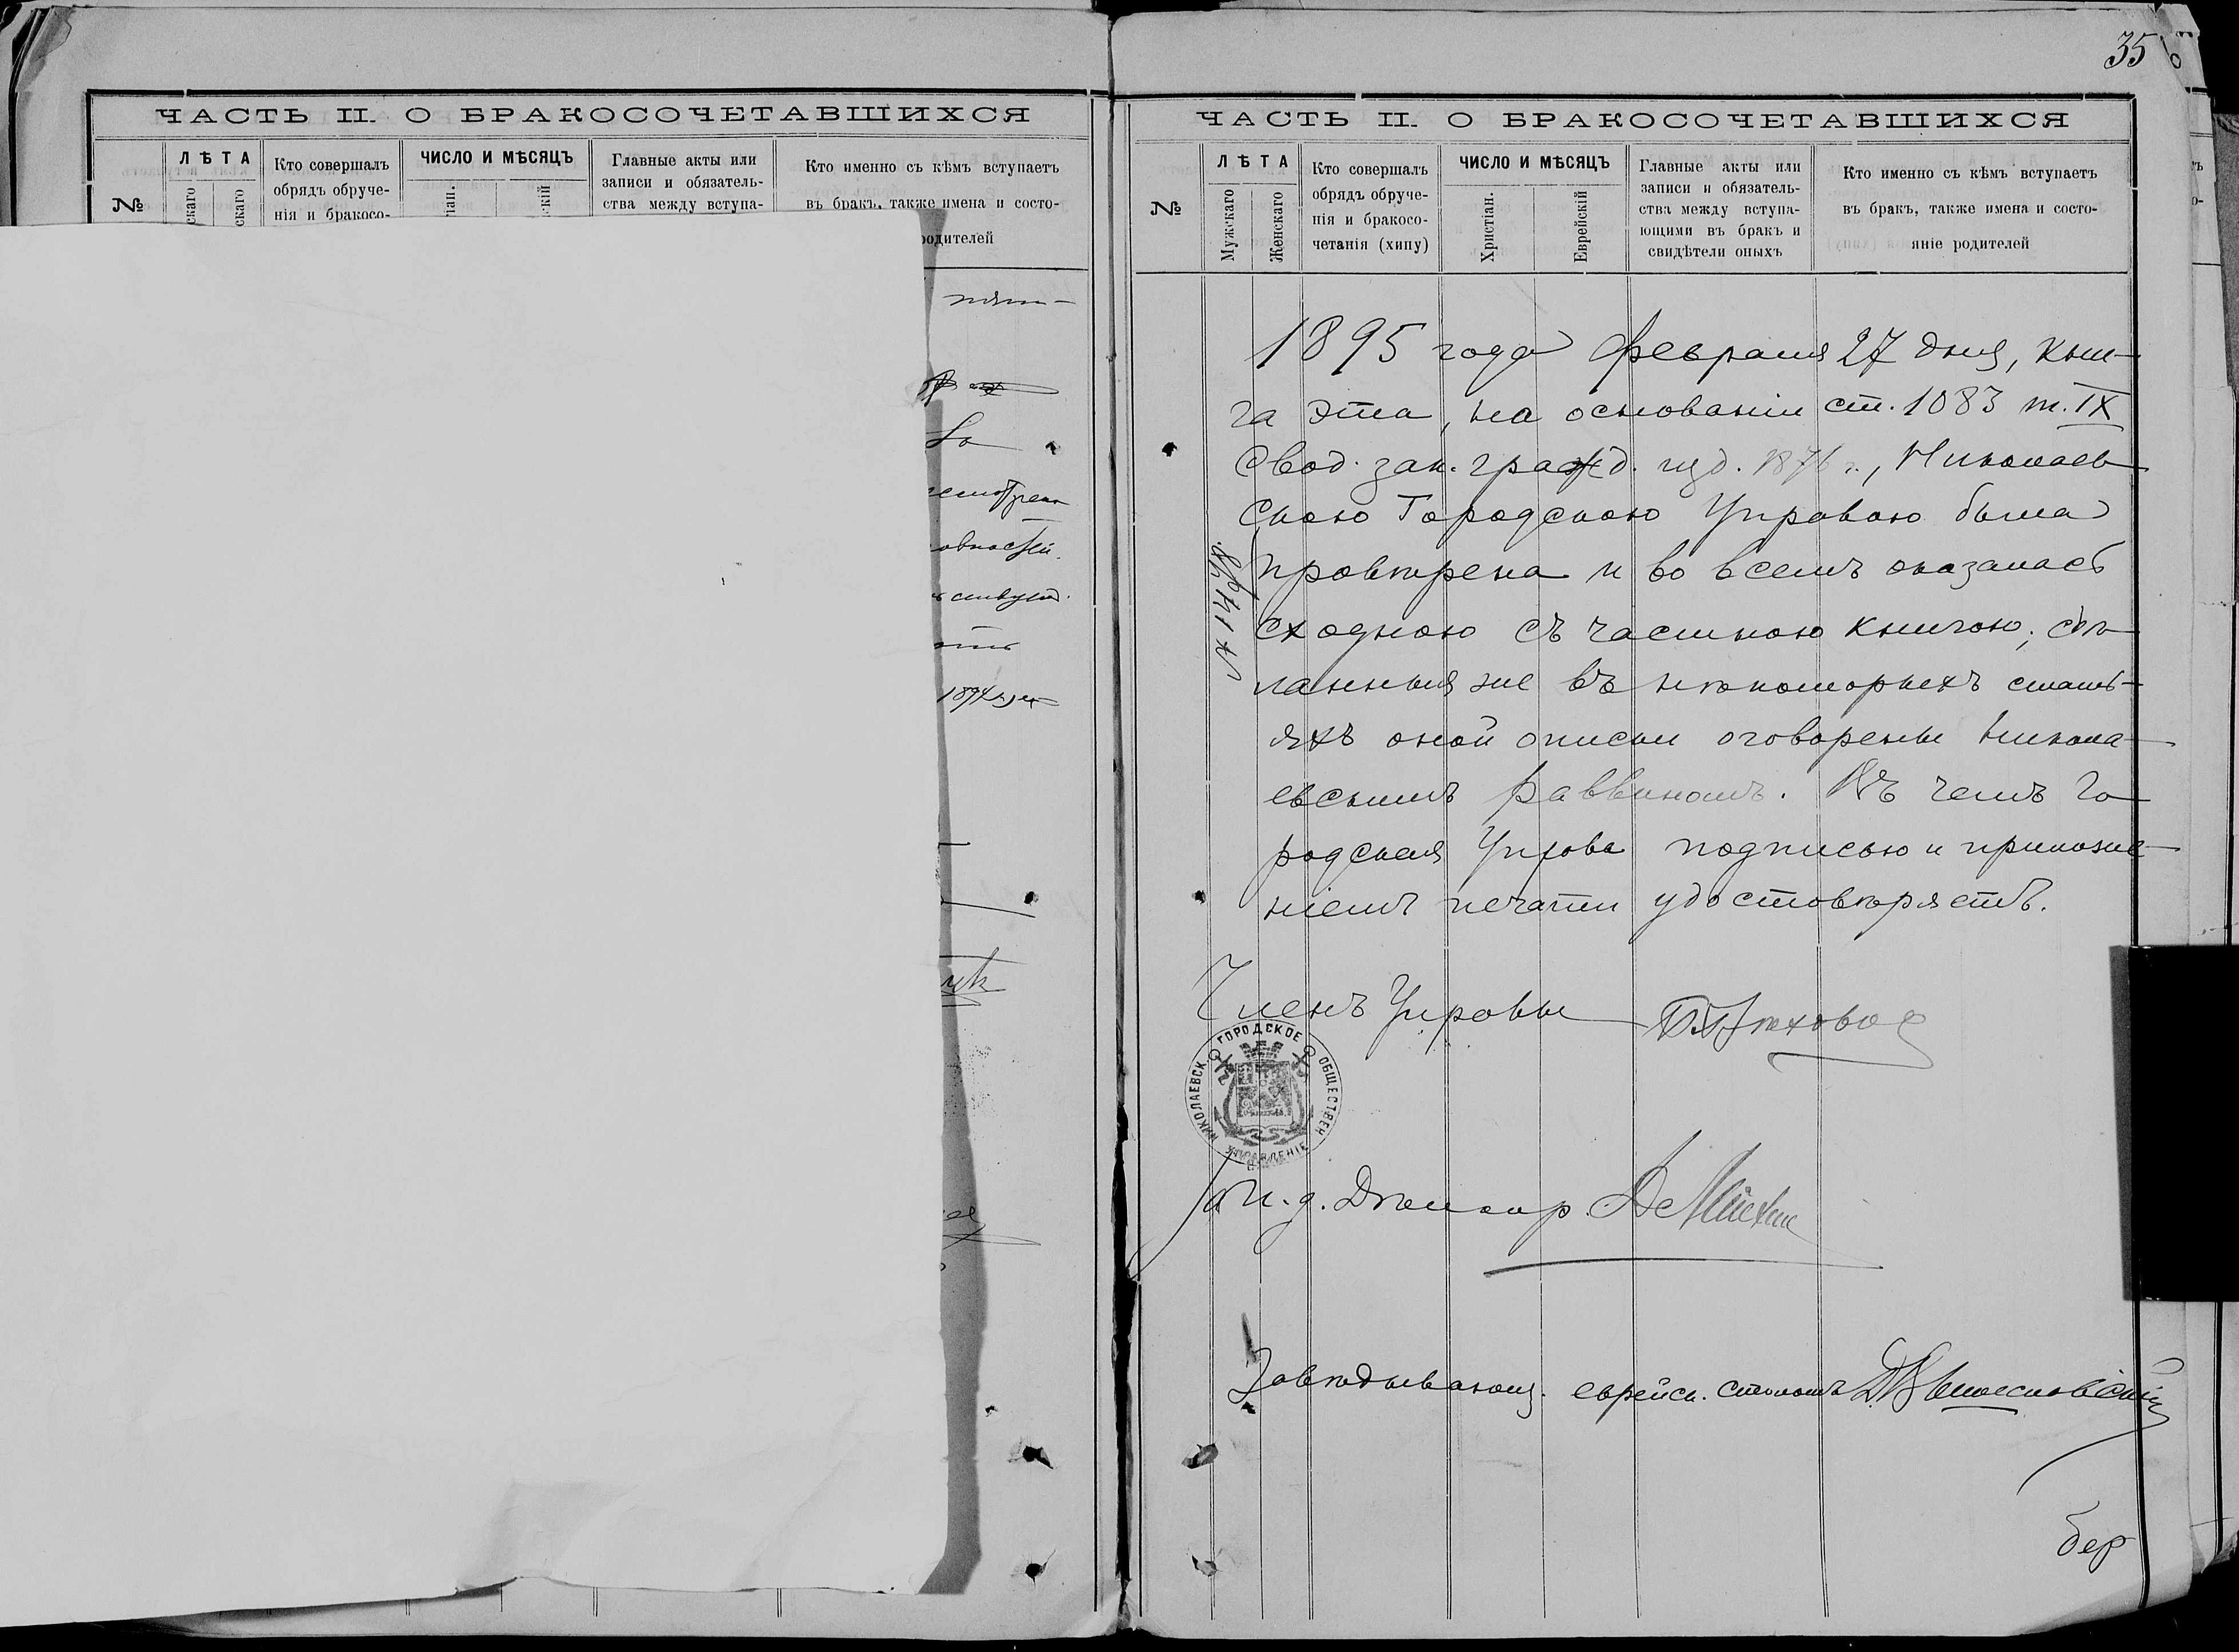 ЧАСТЬ II. О БРАКОСОЧЕТАВШИХСЯ
№
ЛѢТА
скаго
скаго
Кто совершалъ
обрядъ обруче-
нія и бракосо-
ЧИСЛО И МѢСЯЦЪ
іан.
скій
Главные акты или
записи и обязатель-
ства между вступа-
Кто именно съ кѣмъ вступаетъ
въ бракъ, также имена и состо-
родителей
1894
35
ЧАСТЬ II. О БРАКОСОЧЕТАВШИХСЯ
№
ЛѢТА
Мужскаго
Женскаго
Кто совершалъ
обрядъ обруче-
нія и бракосо-
четанія (хипу)
ЧИСЛО И МѢСЯЦЪ
Христіан.
Еврейскій
Главные акты или
записи и обязатель-
ства между вступа-
ющими въ бракъ и
свидѣтели оныхъ
Кто именно съ кѣмъ вступаетъ
въ бракъ, также имена и состо-
яніе родителей
1895 года Февраля 27 дня, кни-
га эта, на основаніи ст. 1083 т. IX
Свод. зак. гражд. изд. 1876 г., Николаев-
скою Городскою Управою была
провѣрена и во всемъ оказалась
сходною съ частною книгою; сдѣ-
ланныя же въ нѣкоторыхъ стать-
яхъ оной описки оговорены Никола-
евскимъ Раввиномъ. Въ чемъ Го-
родская Управа подписью и приложе-
ніемъ печати удостовѣряетъ.
Членъ Управы
НИКОЛАЕВСК. ГОРОДСКОЕ ОБЩЕСТВЕН. УПРАВЛЕНІЕ
И. д.
Завѣдывающ. еврейск. столомъ